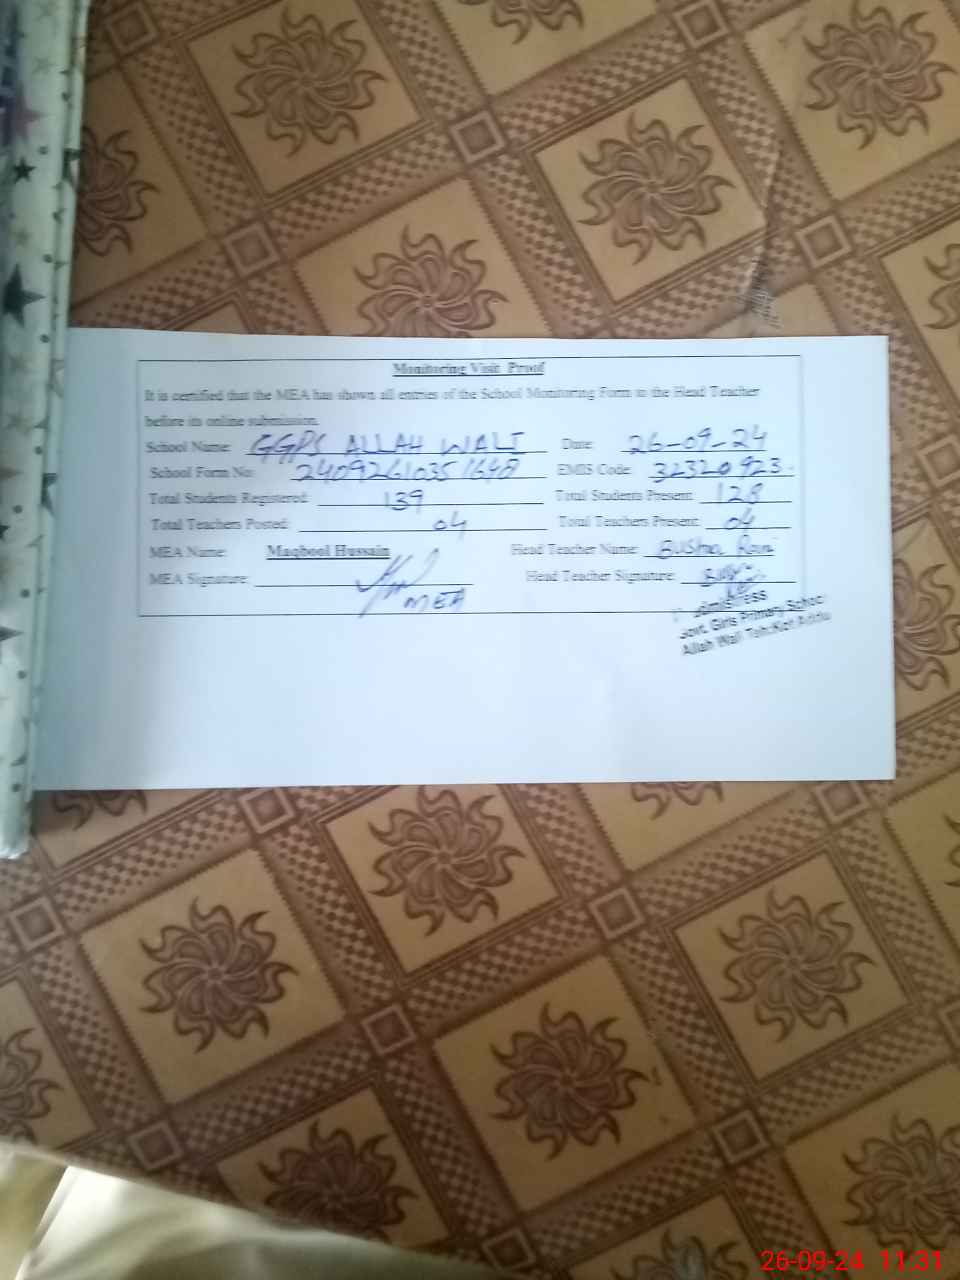 Monitoring Visit Proof
It is certified that the MEA has shown all entries of the School Monitoring Form to the Head Teacher
before its online submission.
School Name: GGPS ALLAH WALI Date: 26-09-24
School Form No: 24092610351648 EMIS Code: 32320923
Total Students Registered: 139 Total Students Present: 128
Total Teachers Posted: 04 Total Teachers Present: 04
MEA Name: Maqbool Hussain Head Teacher Name: Bushra
MEA Signature: Head Teacher Signature:
MEA
Govt. Girls Primary School
Allah Wali Teh: Kot Addu
26-09-24 11:31